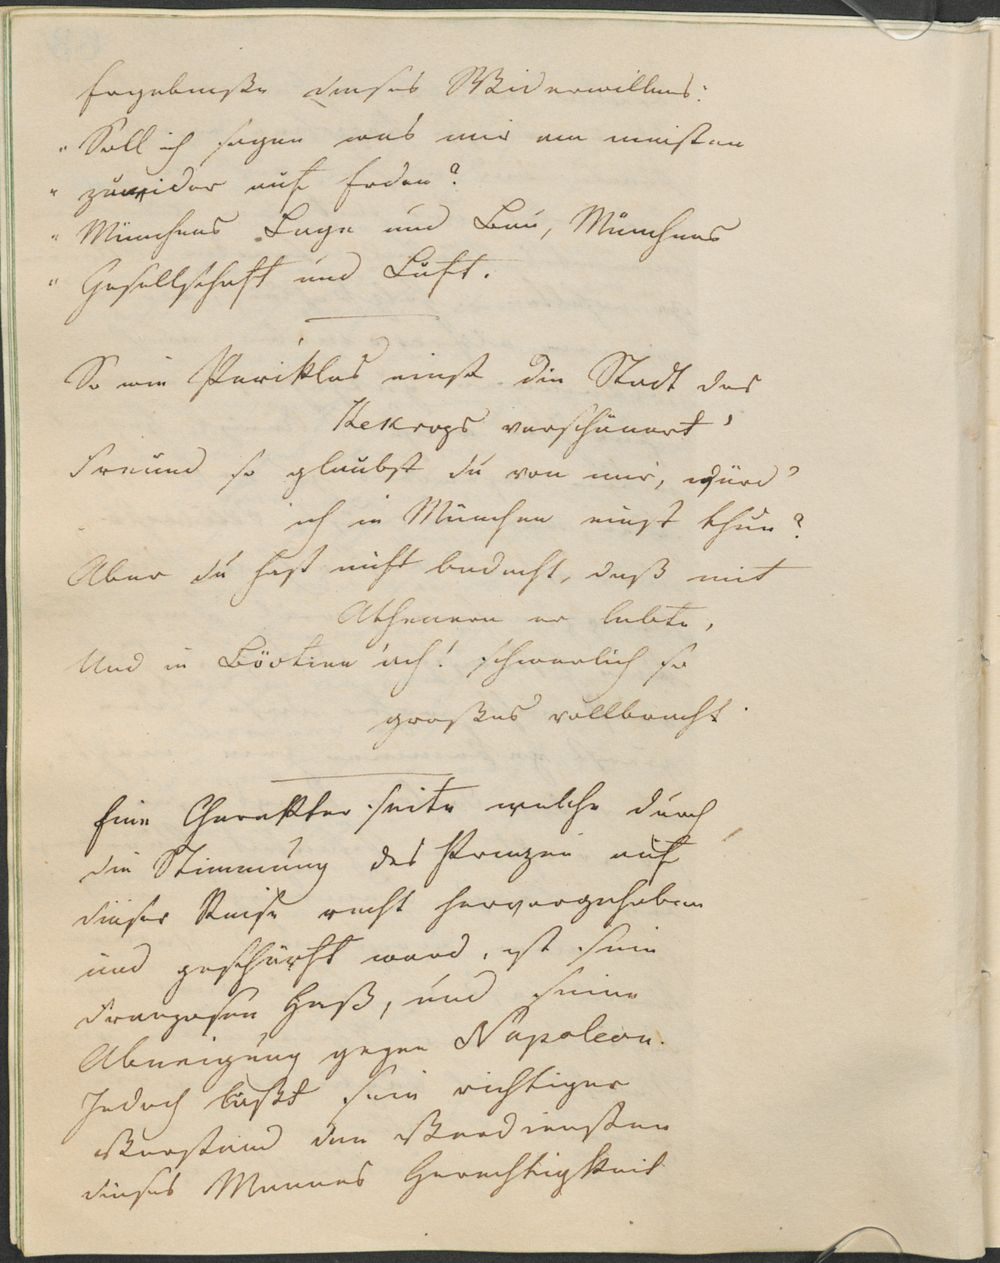 Ergebniße dieses Widerwillens:
„Soll ich sagen was mir am meisten
„zuwider auf Erden?
„Münchens Lage und Bau, Münchens
„Gesellschaft und Luft.
So wie Perikles einst die Stadt des
Kekrops verschönert'
Freund so glaubst du von mir, würd'
ich in München einst thun?
Aber du hast nicht bedacht, daß mit
Athenern er lebte,
Und in Böotien ach! schwerlich so
großes vollbracht.
Eine Charakterseite welche durch
die Stimmung des Prinzen auf
dieser Reise recht hervorgehoben
und geschärft ward, ist sein
Franzosen Haß, und seine
Abneigung gegen Napoleon.
Jedoch läßt sein richtiger
Verstand den Verdiensten
dieses Mannes Gerechtigkeit